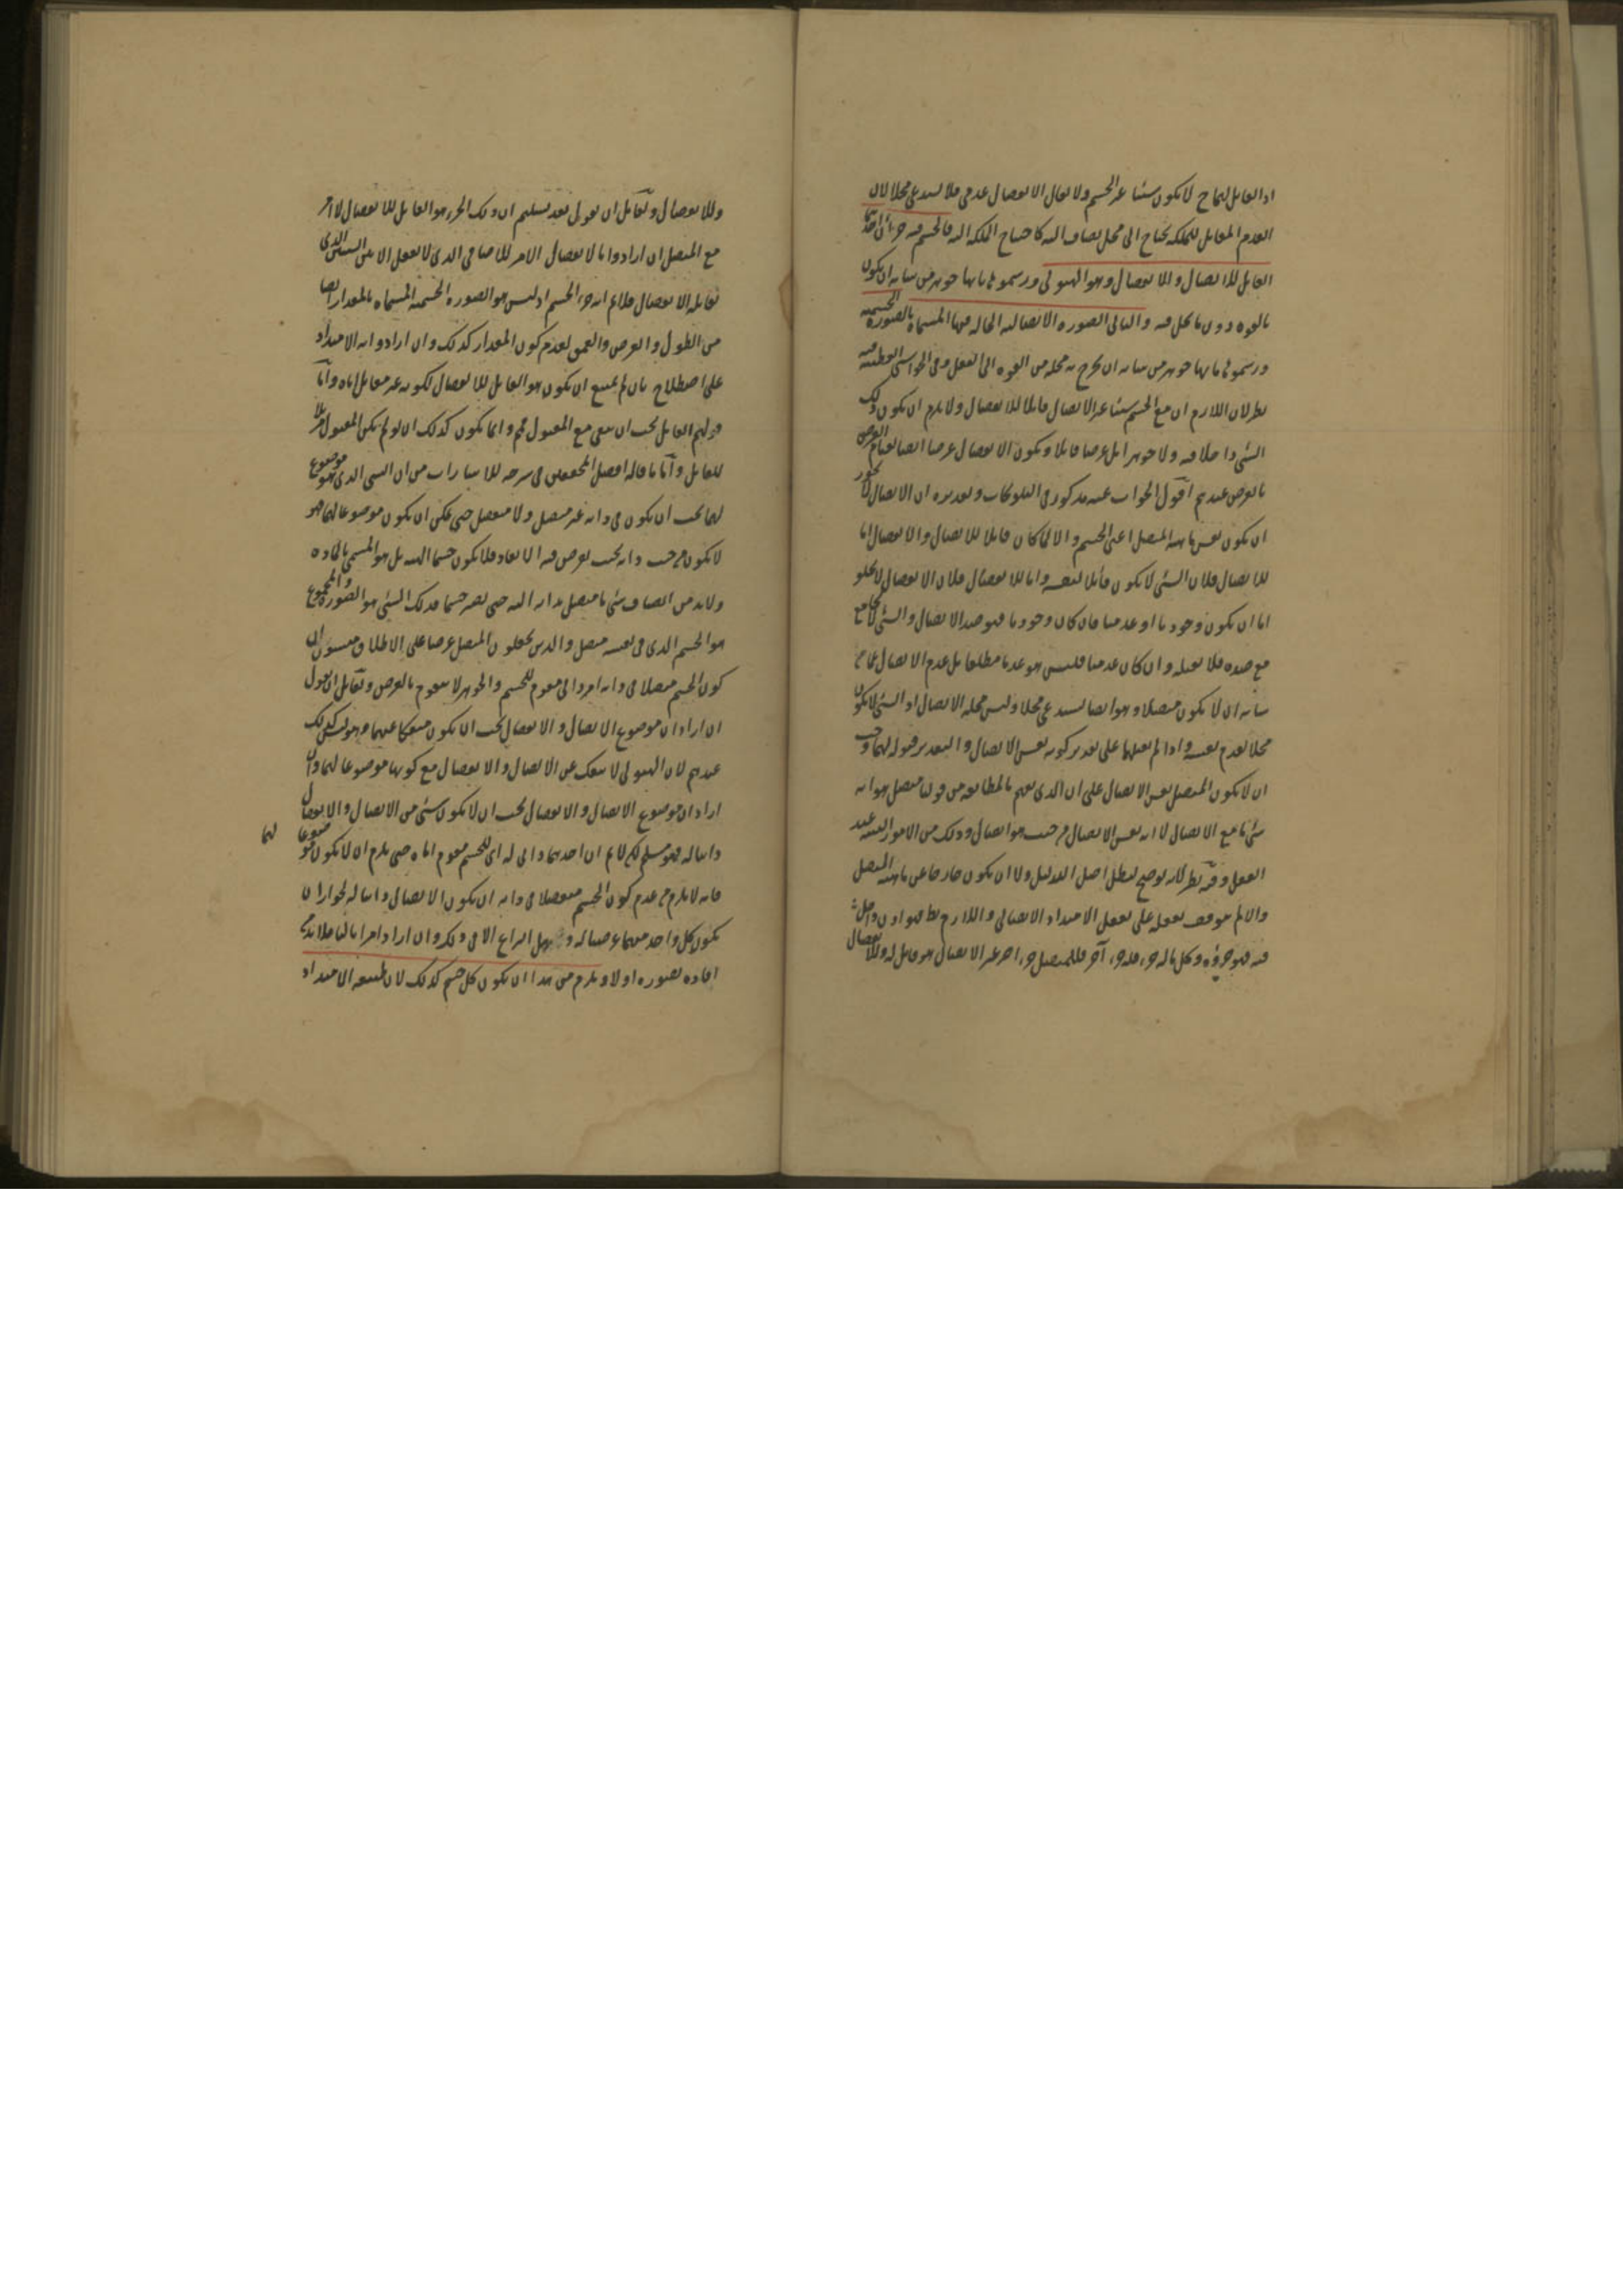 اذ القابل لهما ح لا يكون شيئا غير الجسم ولا يقال الانفصال عدمى فلا يستدعى محلا لان
العدم المقابل للملكة يحتاج الى محل يضاف اليه كاحتياج الملكة اليه فالجسم فيه جزءان احدهما
القابل للاتصال والانفصال وهو الهيولى ورسموها بانها جوهر من شانه ان يكون
بالقوة دون ما يحل فيه والثانى الصورة الاتصالية الحالة فيها المسماة بالصورة الجسمية
ورسموها بانها جوهر من شانه ان يخرج به محله من القوة الى الفعل وفى الحواشى القطبية فيه
نظر لان اللازم ان مع الجسم شيئا غير الاتصال قابلا للانفصال ولا يلزم ان يكون ذلك
الشئ داخلا فيه ولا جوهرا بل عرضا قابلا ويكون الانفصال عرضا ايضا لقيام العرض
بالعرض عندهم اقول الجواب عنه مذكور فى التلويحات وتقريره ان الاتصال لا يجوز
ان يكون نفس ماهية المتصل اعنى الجسم والا لما كان قابلا للاتصال والانفصال اما
للاتصال فلان الشئ لا يكون قابلا لنفسه واما للانفصال فلان الانفصال لا يخلو
اما ان يكون وجوديا او عدميا فان كان وجوديا فهو ضد الاتصال والشئ لا يجامع
مع ضده فلا يقبله وان كان عدميا فليس هو عدما مطلقا بل عدم الاتصال عما من
شانه ان لا يكون متصلا وهو ايضا يستدعى محلا وليس محله الاتصال اذ الشئ لا يكون
محلا لعدم نفسه واذا لم يقبلهما على تقدير كونه نفس الاتصال والتقدير قبوله لهما وجب
ان لا يكون المتصل نفس الاتصال على ان الذى يفهم بالمطابقة من قولنا متصل هو انه
شئ ما مع الاتصال لا انه نفس الاتصال من حيث هو اتصال وذلك من الامور البينة عند
العقل وفيه نظر لانه توضيح لبطل اصل الدليل ولا ان يكون خارجا عن ماهية المتصل
والا لم يتوقف تعقله على تعقل الامتداد الاتصالى واللازم بط فهو اذن داخل
فيه فهو جزؤه وكل ما له جزء فله جزء آخر فللمتصل جزء اخر غير الاتصال هو قابل له وللانفصال
وللانفصال ولقائل ان يقول بعد تسليم ان ذلك الجزء هو القابل للانفصال لا امر
مع المتصل ان ارادوا بالانفصال الامر للاضافى الذى لا يعقل الا بين الشيئين الذى
تقابله الانفصال فلا نم انه جزء الجسم اذ ليس هو الصورة الجسمية المسماة بالمقدار ايضا
من الطول والعرض والعمق لعدم كون المقدار كذلك وان ارادوا به الامتداد
على اصطلاح بان لم يمتنع ان يكون هو القابل للانفصال لكونه غير مقابل اياه واما
قولهم القابل يجب ان يبقى مع المقبول فم وانما يكون كذلك ان لو لم يكن المقبول
للقابل واما ما قاله افضل المحققين فى شرحه للاشارات من ان الشى الذى هو موضوع
لهما يجب ان يكون فى ذاته غير متصل ولا منفصل حتى يمكن ان يكون موضوعا لهما فهو
لا يكون من حيث ذاته بحيث يفرض فيه الابعاد فلا يكون جسما البتة بل هو المسمى بالمادة
ولا بد من اتصاف شئ ما متصل بذاته اليه حتى يصير جسما فذلك الشئ هو الصورة والمجموع
هو الجسم الذى فى نفسه متصل والذين يجعلون المتصل عرضا على الاطلاق فينسون ان
كون الجسم متصلا فى ذاته امر ذاتى مقوم للجسم والجوهر لا يتقوم بالعرض ولقائل ان يقول
ان اراد ان موضوع الاتصال والانفصال يجب ان يكون منفكا عنهما فهو ليس كذلك
عندهم لان الهيولى لا تنفك عن الاتصال والانفصال مع كونها موضوعا لهما وان
اراد ان موضوع الاتصال والانفصال يجب ان لا يكون شئ من الاتصال والانفصال
ذاتيا له فهو مسلم لكن لا نم ان احدهما ذاتى له اى للجسم مقوم اياه حتى يلزم ان لا يكون موضوعا لهما
فانه لا يلزم من عدم كون الجسم منفصلا فى ذاته ان يكون الاتصال ذاتيا له لجواز ان
يكون كل واحد منهما عرضيا له وهل النزاع الا فى ذلك وان اراد امرا ثالثا فلا بد من
افادة تصوره اولا ويلزم من هذا ان يكون كل جسم كذلك لان طبيعة الامتداد